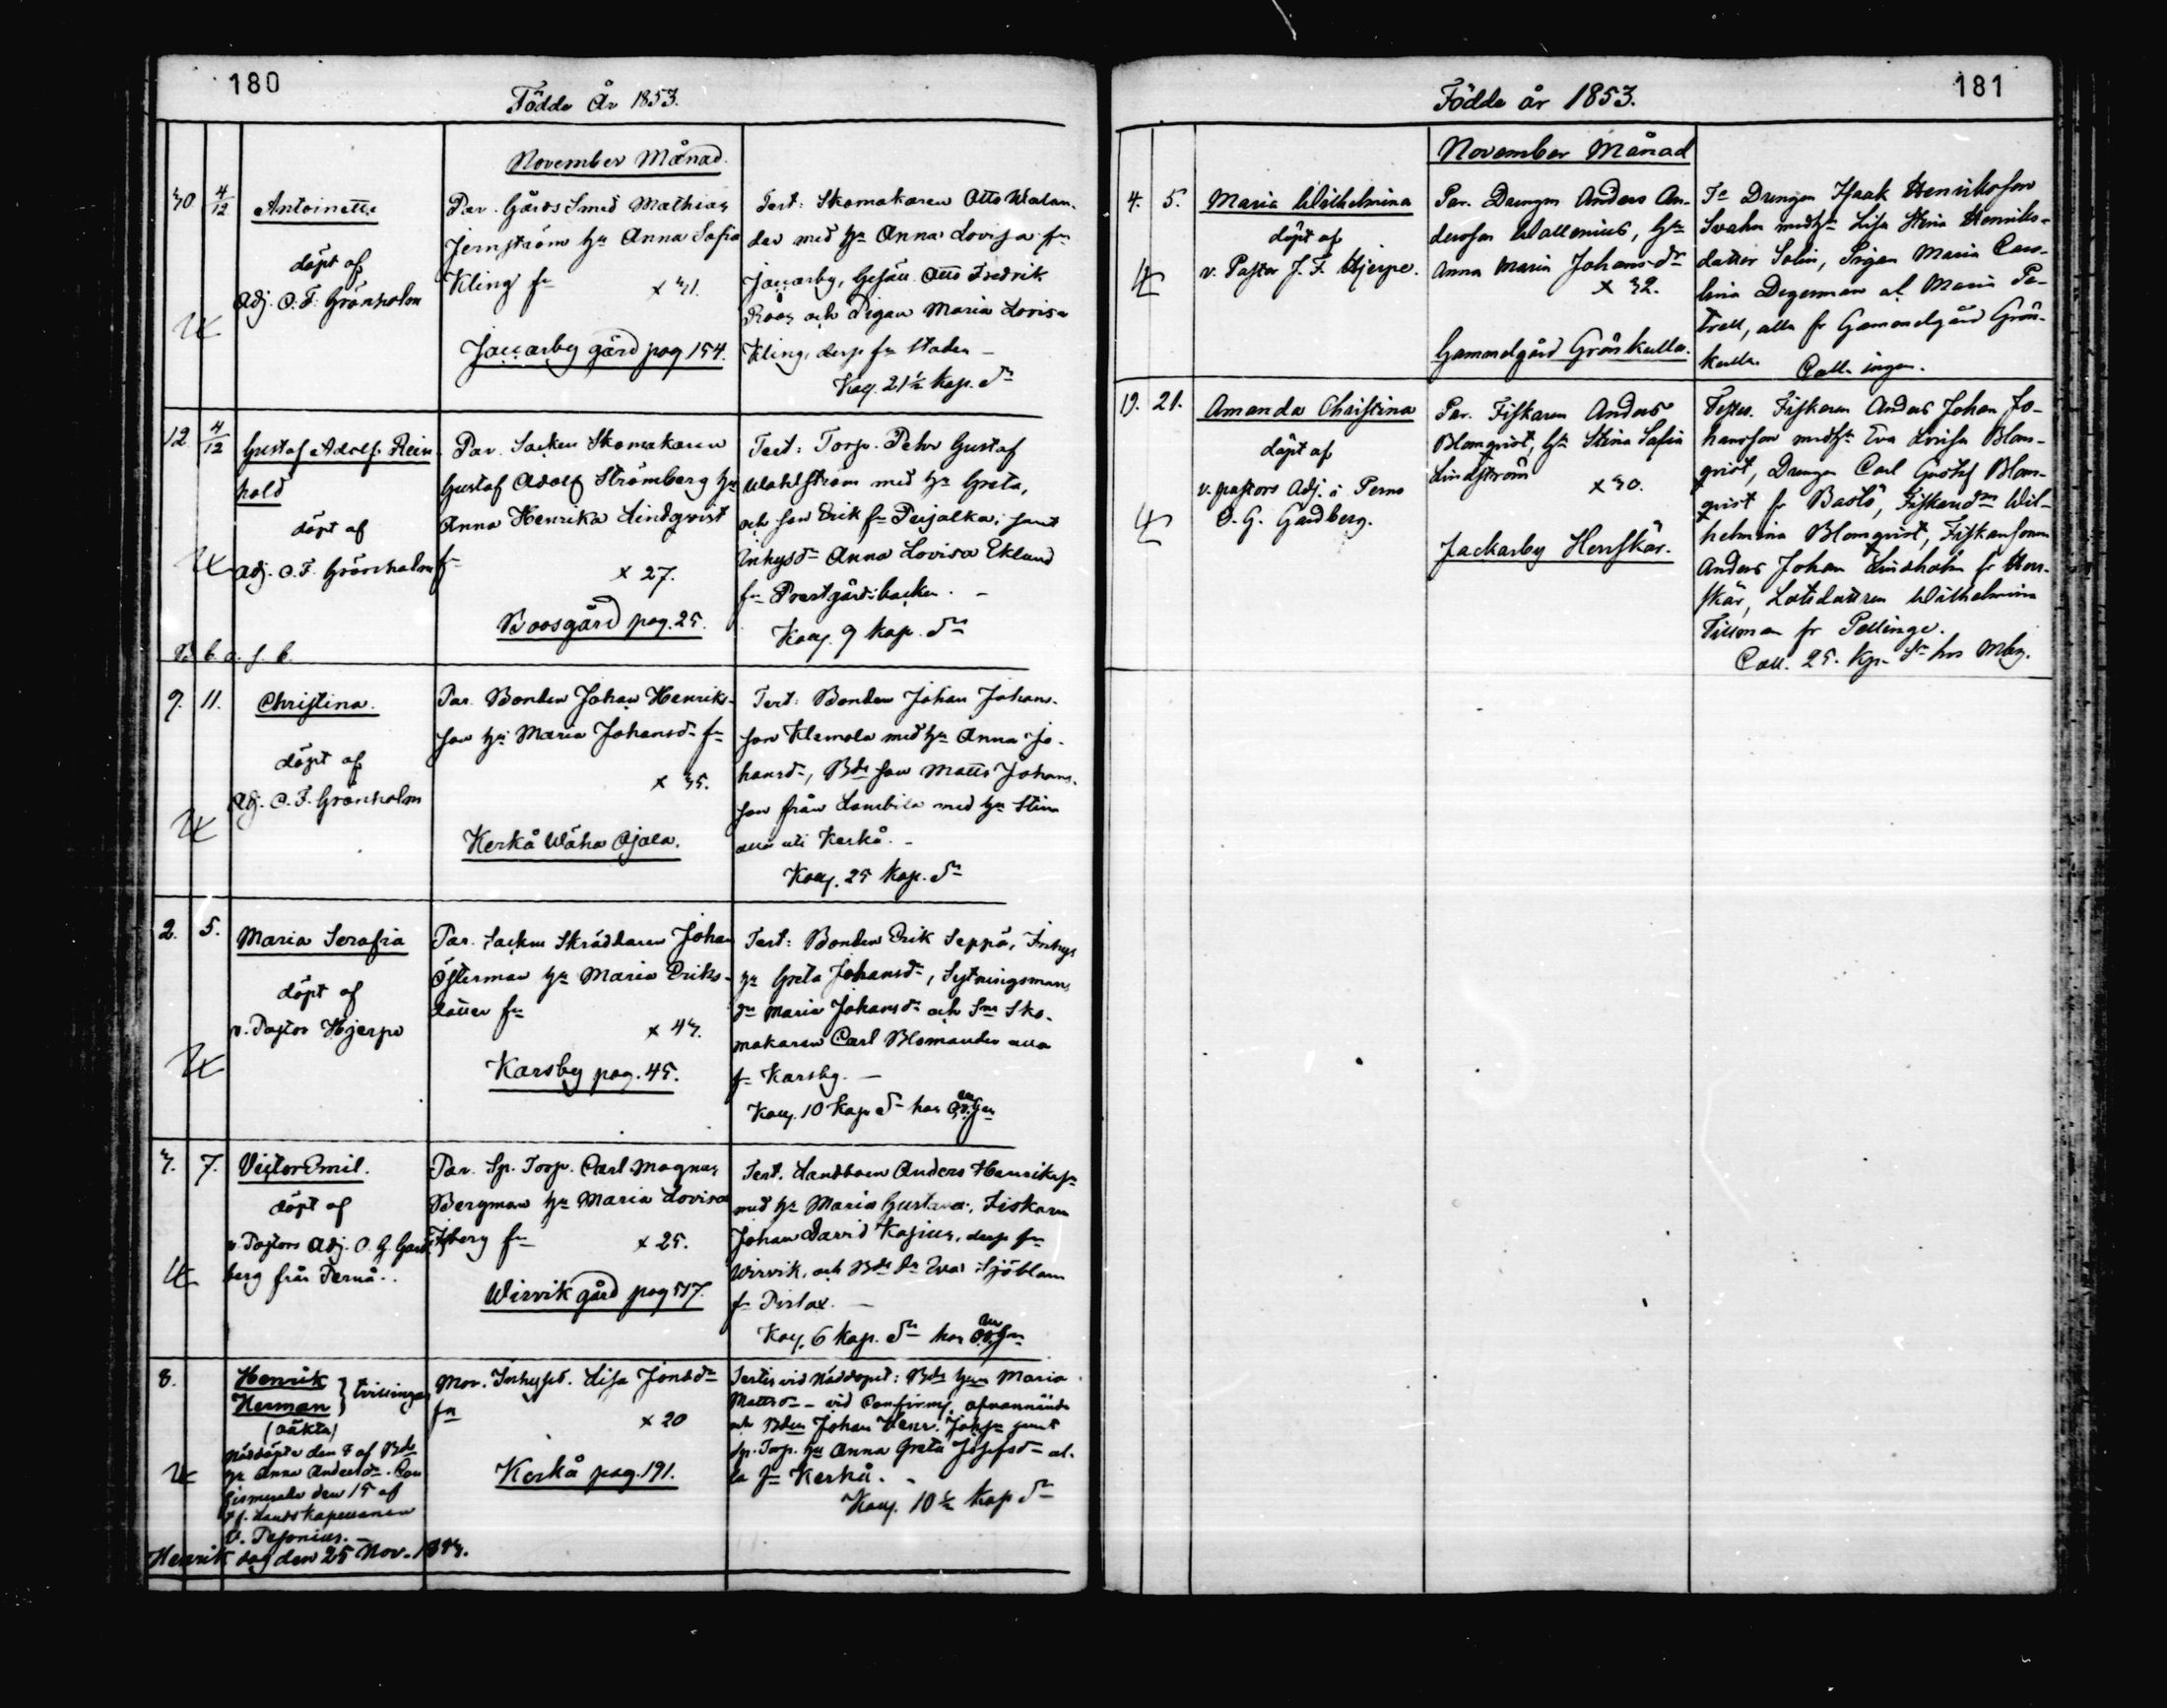 180
Födde År 1853.
November Månad.
30 4/12 Antoinette
döpt af
Adj. O. F. Grönholm
Par. Gårds Smed Mathias
Jernström hu Anna Sofia
Kling fr
x 31.
Jaccarby gård pag 154.
Test: Skomakaren Otto Walan-
der med hu Anna Lovisa fr
Jaccarby, Gesäll Otto Fredrik
Roos och Pigan Maria Lovisa
Kling, desse fr Staden –
Koll. 21½ kop. Sr
12 4/12 Gustaf Adolf Rein-
hold
döpt af
Adj. O. F. Grönholm
B. b. a. f. b.
Par. Socken Skomakaren
Gustaf Adolf Strömberg hu
Anna Henrika Lindqvist
fr
x 27.
Boosgård pag. 25.
Test: Torp. Pehr Gustaf
Wahlström med hu Greta,
och son Erik fr Peijalka, samt
Inhysd Anna Lovisa Eklund
fr Prestgårdsbacken. –
Koll. 9 kop. Sr
9. 11. Christina.
döpt af
Adj. O. F. Grönholm
Par. Bonden Johan Henriks-
son hu Maria Johansd fr
x 35.
Kerkå Wäha Ojala.
Test: Bonden Johan Johans-
son Klemola med hu Anna Jo-
hansd, Bde son Matts Johans-
son från med hu Stina
alla uti Kerkå. –
Koll. 25 kop. Sr
2. 5. Maria Serafia
döpt af
v. Pastor Hjerpe
Par. Socken Skräddaren Johan
Österman hu Maria Eriks-
dotter fr
x 43.
Karsby pag. 45.
Test: Bonden Erik Seppä, Inhys
hu Greta Johansd, Sytningsmans
Maria Johansd och Sko-
makaren Carl Blomander alla
fr Karsby. –
Koll. 10 kop Sr hos
3. 7. Victor Emil.
döpt af
v. Pastors Adj. O. G. Gard-
berg från Pernå.
Par. Sp. Torp. Carl Magnus
Bergman hu Maria Lovisa
fr
x 25.
Wirvik gård pag 517.
Test. Landboen Anders Henrikss
med hu Maria Gustava, Fiskaren
Johan David Kasius, desse fr
Wirvik, och Bde dr Eva Sjöblom
fr Pirlax. –
Koll. 6 kop. Sr hos
8. Henrik
Herman } tvillingar
(oäkta)
Nöddöpte den 8 af Bde
hu Anna Andersd. Con-
firmerade den 15 af
t.f. Landskapellanen
Henrik dog den 25 Nov. 1853.
Mor. Inhyst. Lisa Jonsd
fr
x 20
Kerkå pag. 191.
Testes vid Nöddopet: Bde hu Maria
Mattsd – vid Confirm. ofvannämde
och Bden Johan Henr. Johss samt
Sp. Torp. hu Anna Greta Josefsd al-
la fr Kerkå. –
Koll. 10½ kop Sr
181
Födde år 1853.
November Månad
4. 5. Maria Wilhelmina
döpt af
v. Pastor J. F. Hjerpe.
Par. Drengen Anders An-
dersson Wallenius, Hu
Anna Maria Johansdr
x 32.
Gammelgård Grönkulla.
Te Drengen Isaak Henriksson
Svahn med hu Lisa Stina Henriks-
dotter Solin, Pigan Maria Caro-
lina Degerman o. Maria Pe-
trell, alla fr Gammelgård Grön-
kulla. Coll. ingen.
19. 21. Amanda Christina
döpt af
v. pastors Adj. i Perno
O. G. Gardberg.
Par. Fiskaren Anders
Blomqvist, Hu Stina Sofia
Lindström
x 30.
Jackarby Herrskär.
Testes. Fiskaren Anders Johan Jo-
hansson med hu Eva Lovisa Blom-
qvist, Drengen Carl Gustaf Blom-
qvist fr Bastö, Fiskaredr Wil-
helmina Blomqvist, Fiskaresonen
Anders Johan Lindholm fr Herr-
skär, Lotsdottren Wilhelmina
Tillman fr Pellinge.
Coll. 25. kp. Sr hos Mbg.